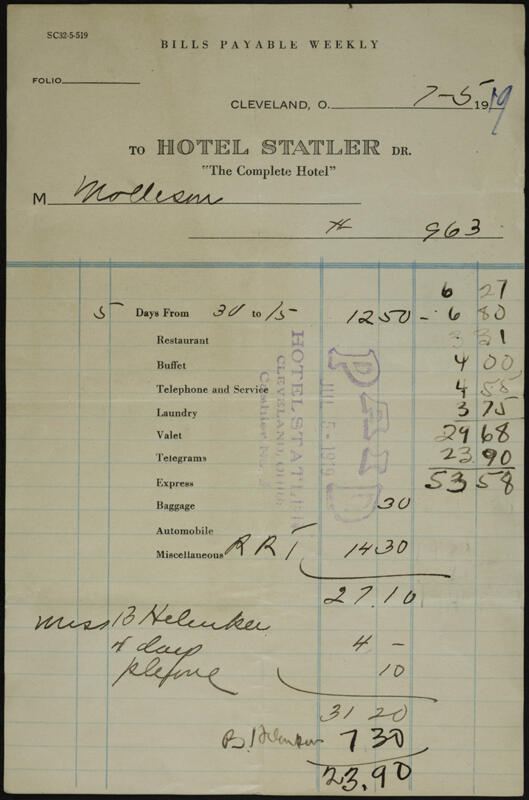 SC32-5-519
BILLS PAYABLE WEEKLY
FOLIO
CLEVELAND, O. 7-5 1919
TO HOTEL STATLER DR.
"The Complete Hotel"
M Mollison
# 963
6 27
5 Days From 30 to 1/5 12 50 - 6 80
Restaurant 3 31
Buffet 4 00
Telephone and Service 4 55
Laundry 3 75
Valet 29 68
Telegrams 23.90
Express 53 58
Baggage 30
Automobile
Miscellaneous R R T 14 30
27.10
HOTEL STATLER
CLEVELAND, OHIO
Cashier No.
PAID
JUL 5 - 1919
Miss B Helenker
4 days 4 -
10
31 20
7 30
23.90